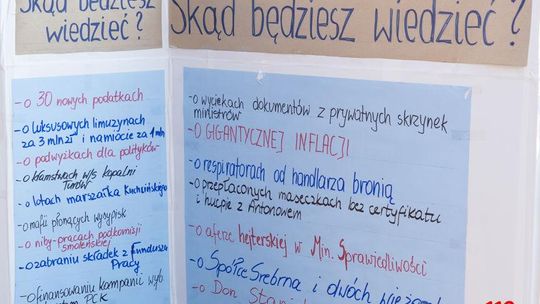 Skąd będziesz
wiedzieć?
- o 30 nowych podatkach
- o luksusowych limuzynach
za 3 mln zł i namiocie za 1 mln
- o podwyżkach dla polityków
- o kłamstwach w/s kopalni
Turów
- o lotach marszałka Kuchcińskiego
- o mafii płonących wysypisk
- o niby-pracach podkomisji
smoleńskiej
- o zabraniu składek z Funduszu
Pracy
- o finansowaniu kampanii wyb
PCK
Skąd będziesz wiedzieć?
- o wyciekach dokumentów z prywatnych skrzynek
ministrów
- O GIGANTYCZNEJ INFLACJI
- o respiratorach od handlarza bronią
- o przepłaconych maseczkach bez certyfikatu
i hucpie z Antonowem
- o aferze hejterskiej w Min. Sprawiedliwości
- o Spółce Srebrna i dwóch
- o Don